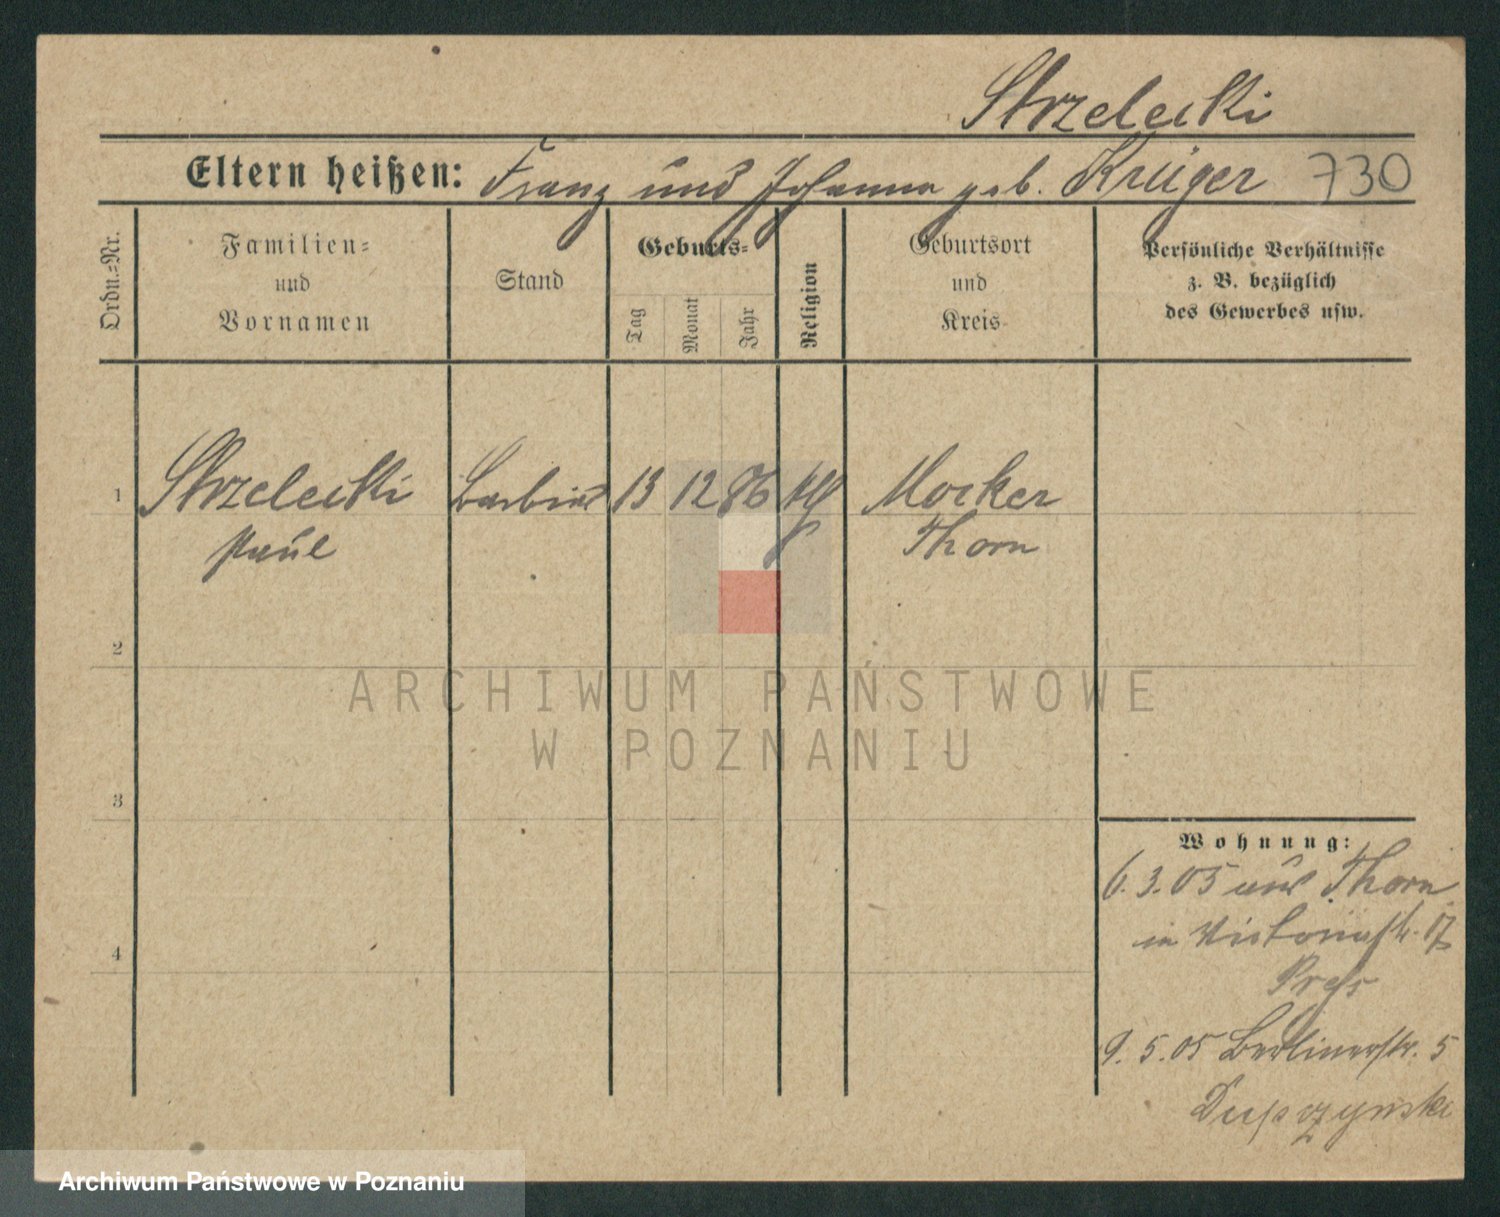 Strzelecki
Eltern heißen: Franz und Johanna geb. Krüger 730
Ordn.=Nr.
Familien=
und
Vornamen
Stand
Geburts=
Tag
Monat
Jahr
Religion
Geburtsort
und
Kreis
Persönliche Verhältnisse
z. B. bezüglich
des Gewerbes usw.
1 Strzelecki Barbier 13 12 86 kth Mocker
Paul Thorn
2
3
4
Wohnung:
6.3.05 aus Thorn
in Victoriastr. 17
9.5.05 Berlinerstr. 5
ARCHIWUM PAŃSTWOWE
W POZNANIU
Archiwum Państwowe w Poznaniu